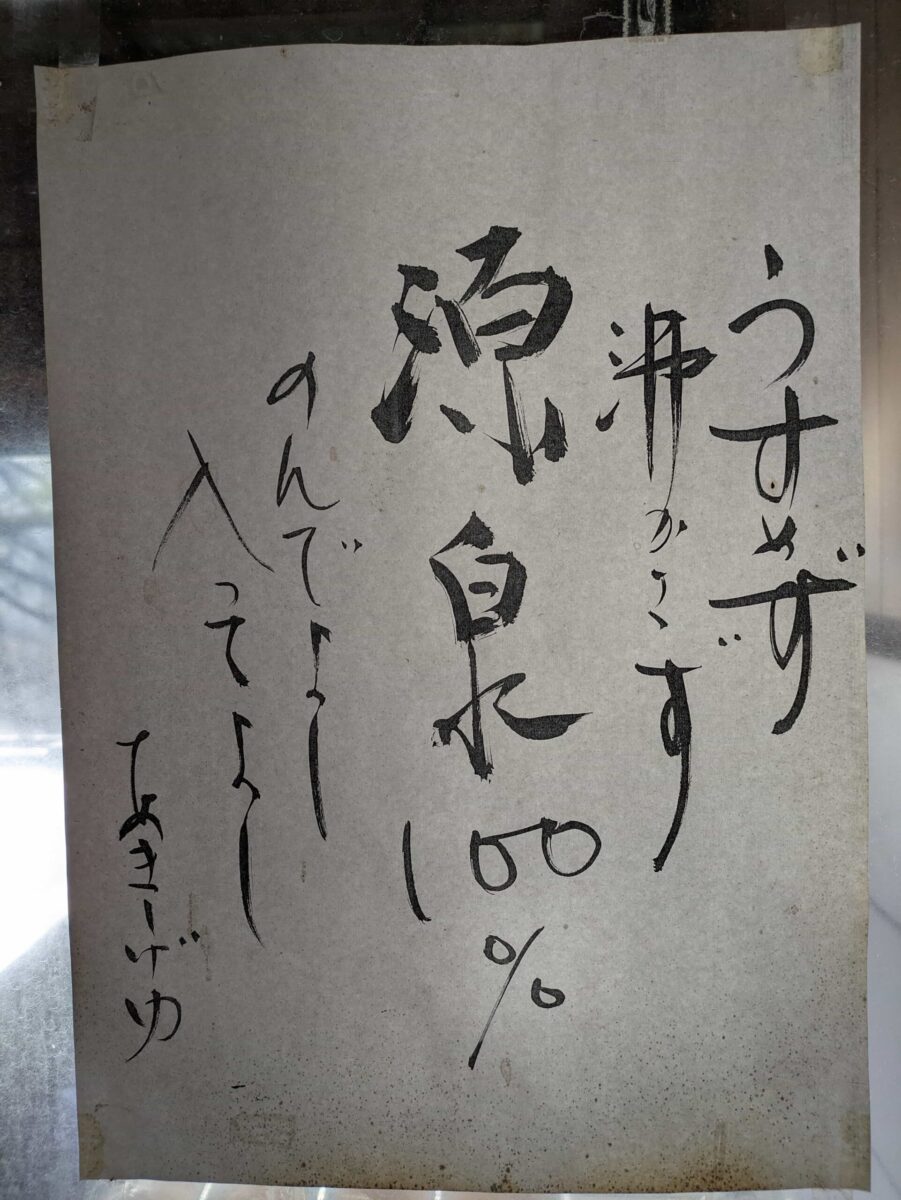 うすめず
沸かさず
源泉100%
のんでよし
入ってよし
あきーげゆ